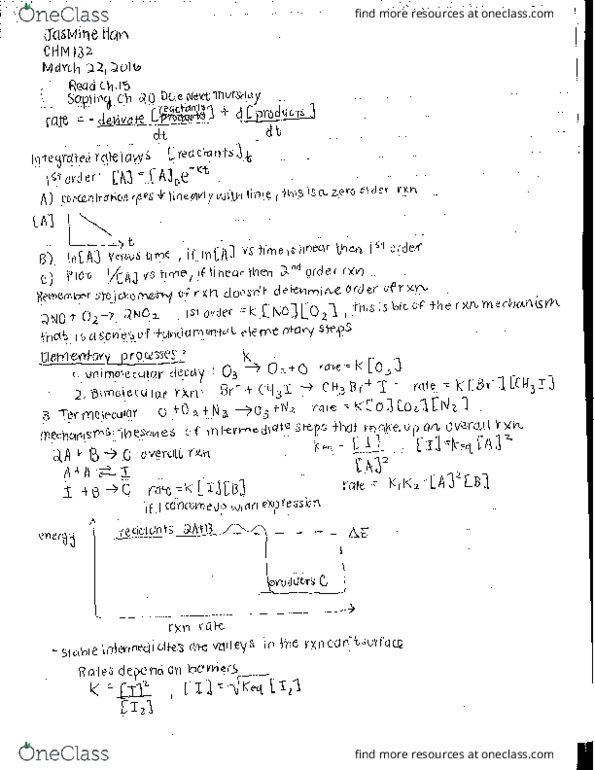 OneClass
find more resources at oneclass.com
Jasmine Han
CHM 132
March 22, 2016
Read Ch.15
Sapling Ch 20 Due Next Thursday
rate = - derivate [reactants] + d[products]
dt dt
Integrated rate laws [reactants]t
1st order: [A] = [A]₀e^-kt
A) concentration goes ↓ linearly with time, this is a zero order rxn
[A]
t
B) ln[A] versus time, if ln[A] vs time is linear then 1st order
C) Plot 1/[A] vs time, if linear then 2nd order rxn
Remember stoichometry of rxn doesn't determine order of rxn
2NO + O₂ → 2NO₂ 1st order = K[NO][O₂], this is b/c of the rxn mechanism
that is a series of fundamental elementary steps
Elementary processes:
1. unimolecular decay: O₃ →K O₂ + O rate = K[O₃]
2. Bimolecular rxn: Br⁻ + CH₃I → CH₃Br + I⁻ rate = K[Br⁻][CH₃I]
3. Termolecular O + O₂ + N₂ → O₃ + N₂ rate = K[O][O₂][N₂]
mechanisms: the series of intermediate steps that make up an overall rxn
2A + B → C overall rxn Keq = [I]/[A]² [I] = Keq[A]²
A + A ⇌ I
I + B → C rate = K[I][B] rate = K₁K₂·[A]²[B]
if I can come up w/ an expression
energy
reactants 2A+B
ΔE
products C
rxn rate
- stable intermediates are valleys in the rxn surface
Rates depend on barriers
K = [I]²/[I₂], [I] = √Keq[I₂]
OneClass
find more resources at oneclass.com